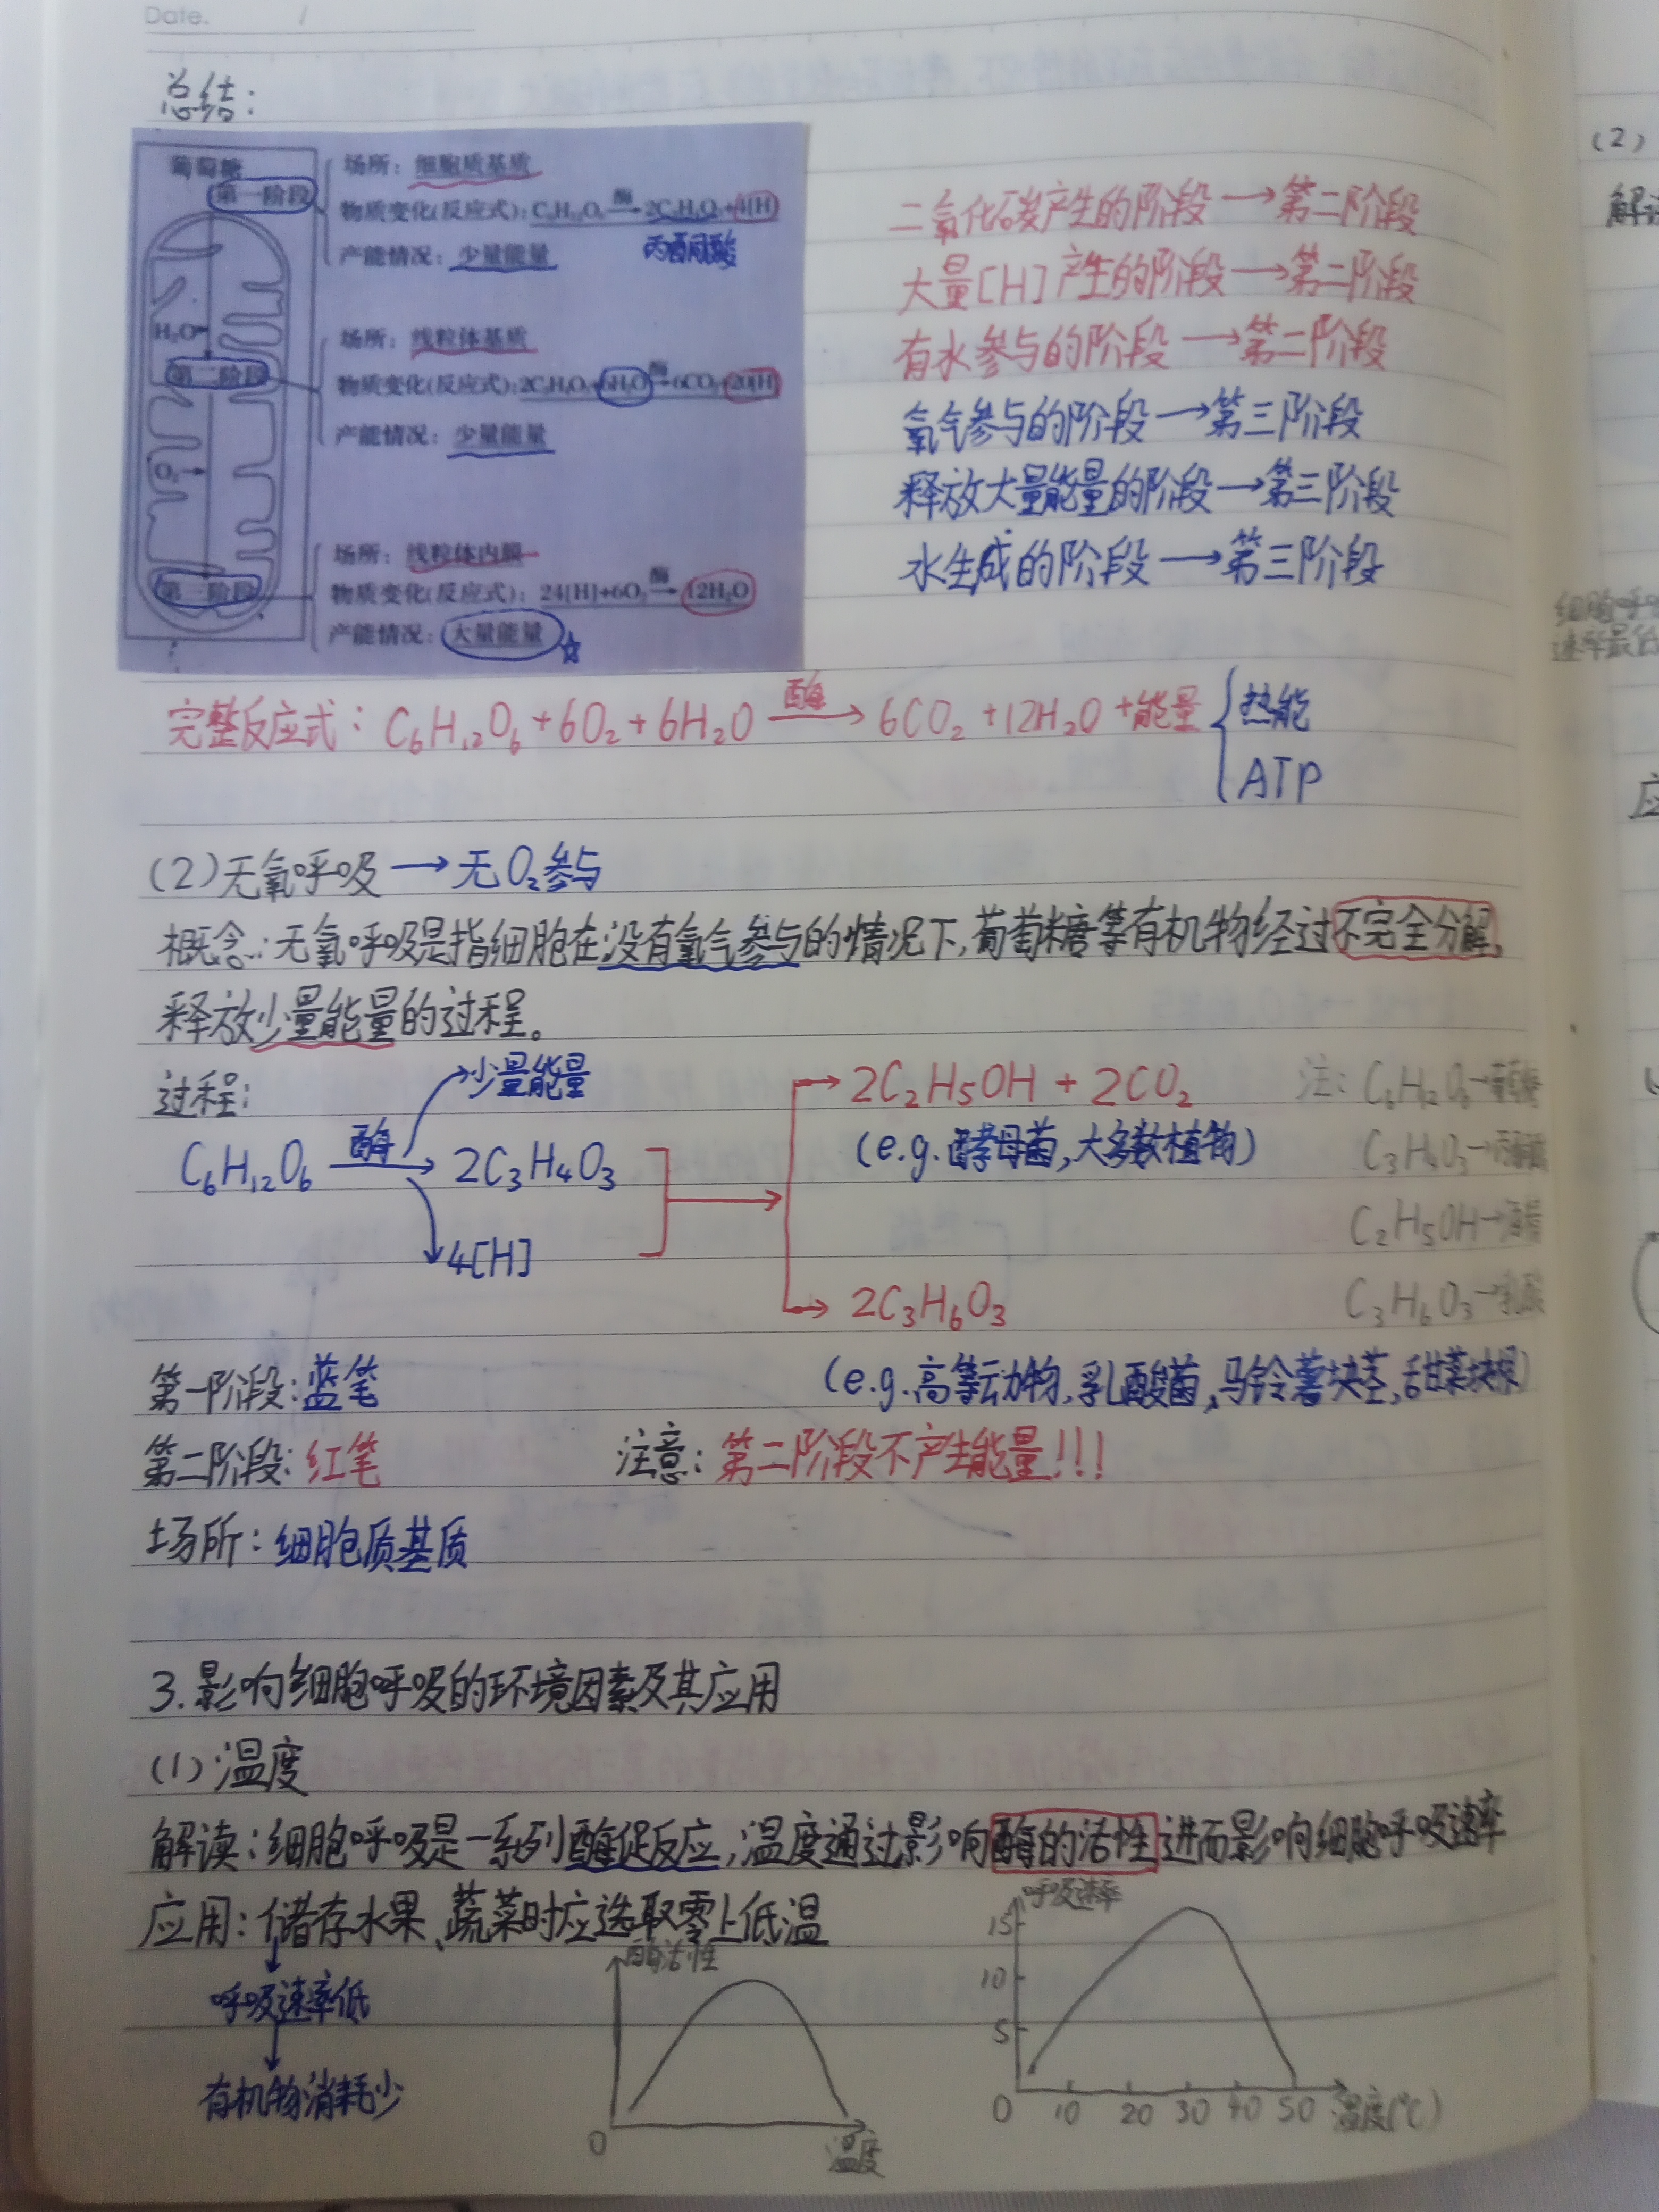 Date. /
总结:
葡萄糖
第一阶段
场所: 细胞质基质
物质变化(反应式): C₆H₁₂O₆ 酶→ 2C₃H₄O₃+4[H]
丙酮酸
产能情况: 少量能量
H₂O→
第二阶段
场所: 线粒体基质
物质变化(反应式): 2C₃H₄O₃+6H₂O 酶→ 6CO₂+20[H]
产能情况: 少量能量
O₂→
第三阶段
场所: 线粒体内膜
物质变化(反应式): 24[H]+6O₂ 酶→ 12H₂O
产能情况: 大量能量 ☆
二氧化碳产生的阶段→第二阶段
大量[H]产生的阶段→第二阶段
有水参与的阶段→第二阶段
氧气参与的阶段→第三阶段
释放大量能量的阶段→第三阶段
水生成的阶段→第三阶段
完整反应式: C₆H₁₂O₆+6O₂+6H₂O 酶→ 6CO₂+12H₂O+能量{热能
ATP
(2)无氧呼吸→无O₂参与
概念:无氧呼吸是指细胞在没有氧气参与的情况下,葡萄糖等有机物经过不完全分解,
释放少量能量的过程。
过程:
少量能量
C₆H₁₂O₆ 酶→ 2C₃H₄O₃
4[H]
2C₂H₅OH + 2CO₂
(e.g.酵母菌,大多数植物)
2C₃H₆O₃
(e.g.高等动物,乳酸菌,马铃薯块茎,甜菜块根)
注: C₆H₁₂O₆→葡萄糖
C₃H₄O₃→丙酮酸
C₂H₅OH→酒精
C₃H₆O₃→乳酸
第一阶段:蓝笔
第二阶段:红笔
注意:第二阶段不产生能量!!!
场所:细胞质基质
3.影响细胞呼吸的环境因素及其应用
(1)温度
解读:细胞呼吸是一系列酶促反应,温度通过影响酶的活性进而影响细胞呼吸速率
应用:储存水果、蔬菜时应选取零上低温
↓
呼吸速率低
↓
有机物消耗少
酶活性
0
温度
呼吸速率
15
10
5
0 10 20 30 40 50 温度(℃)
(2)
细胞呼
速率最低